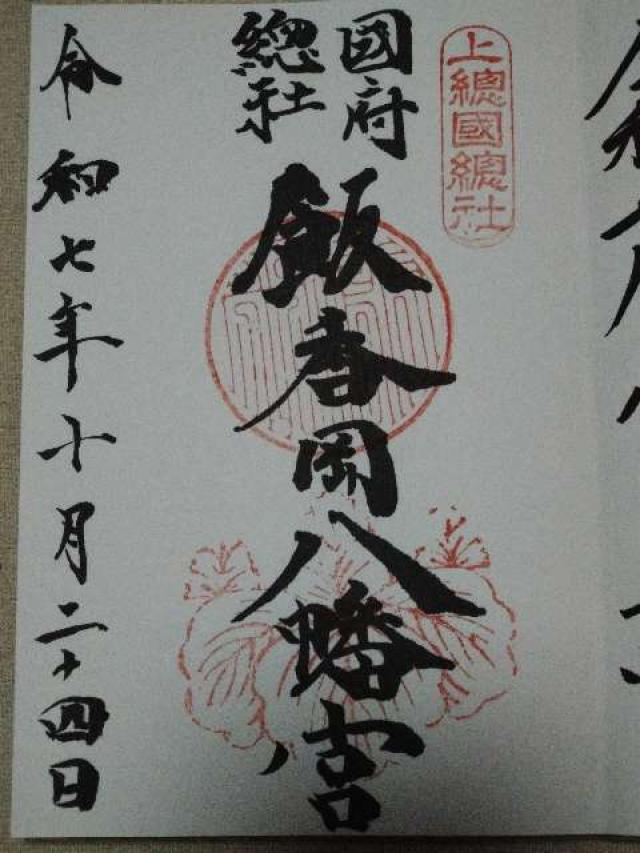 上總國總社
國府
總社
飯香岡八幡宮
令和七年十月二十四日